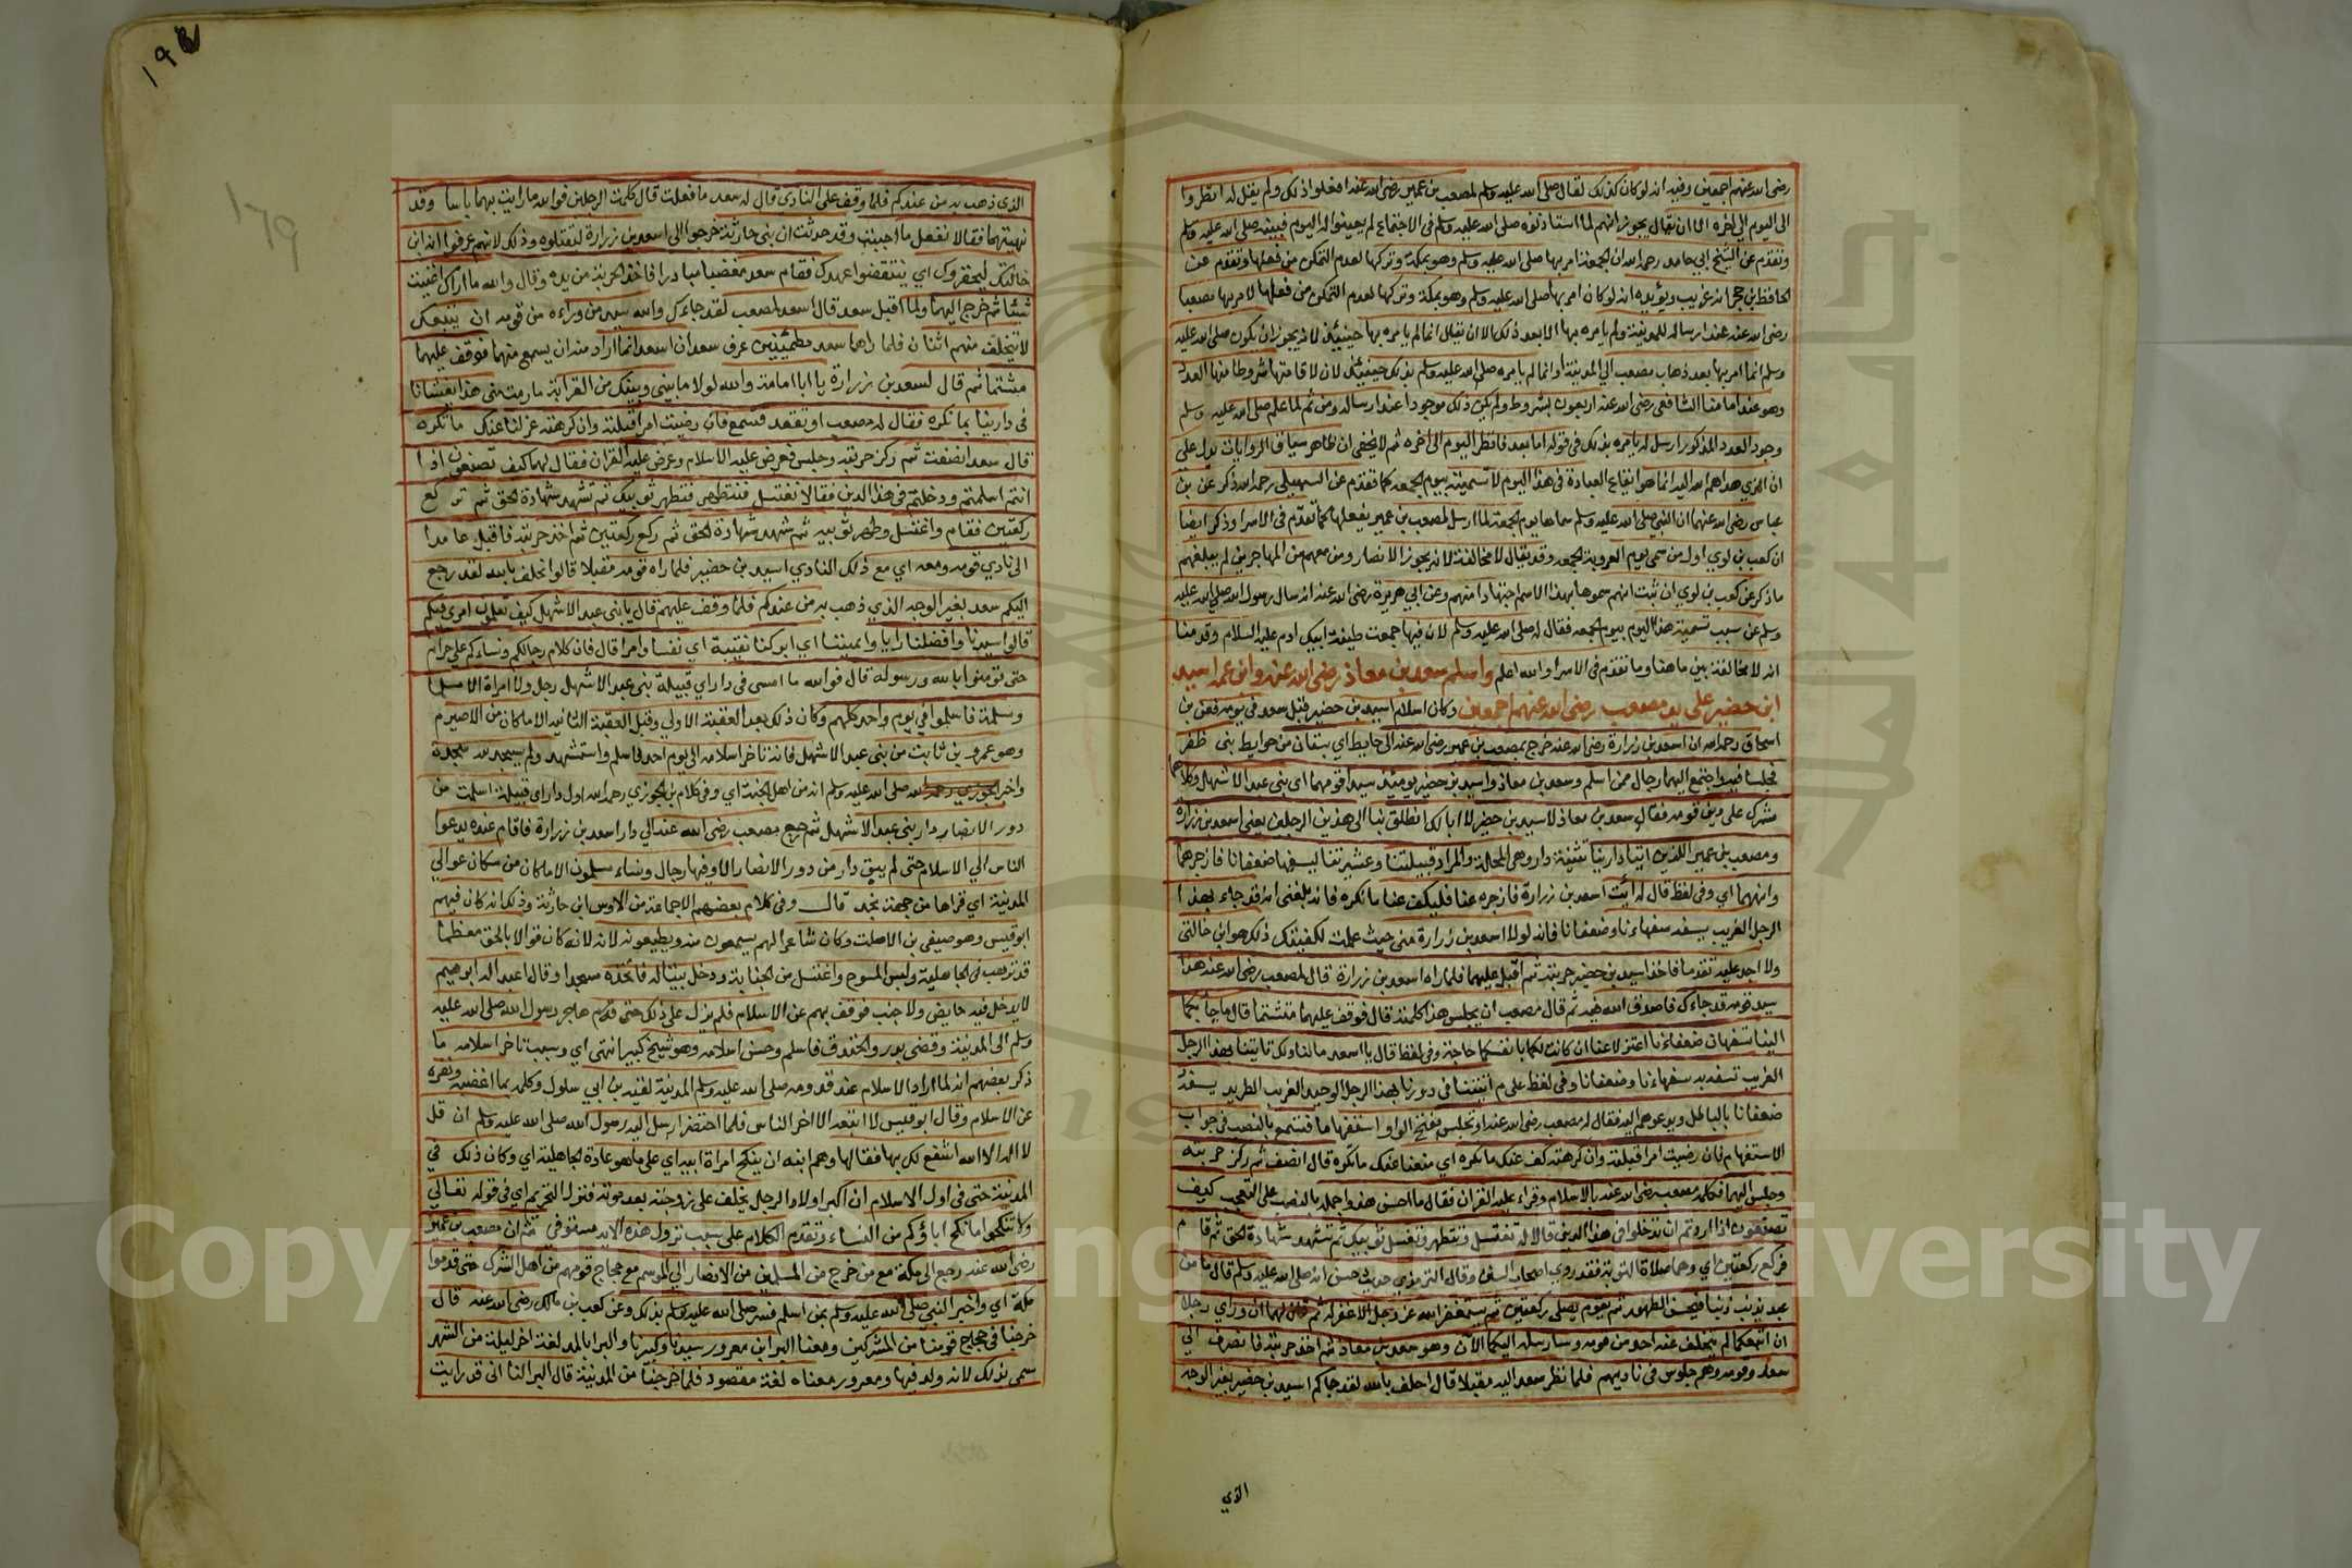 رضى الله عنهم اجمعين وفيه انه لو كان كذلك لقال صلى الله عليه وسلم لمصعب بن عمير رضى الله عنه افعلوا ذلك ولم يقل له انظروا
الى اليوم الى اخره الا ان يقال يجوز انهم لما استاذنوه صلى الله عليه وسلم فى الاجتماع لم يعينوا له اليوم فبينه صلى الله عليه وسلم
وتقدم عن الشيخ ابي حامد رحمه الله ان الجمعة امر بها صلى الله عليه وسلم وهو بمكة وتركها لعدم التمكن من فعلها وتقدم عن
الحافظ بن حجر انه غريب ويؤيده انه لو كان امر بها صلى الله عليه وسلم وهو بمكة وتركها لعدم التمكن من فعلها لامر بها مصعبا
رضى الله عنه عند ارساله للمدينة ولم يامره بها الا بعد ذلك الا ان يقال انما لم يامره بها حينئذ لانه يجوز ان يكون صلى الله عليه
وسلم انما امر بها بعد ذهاب مصعب الى المدينة او انما لم يامره صلى الله عليه وسلم بذلك حينئذ لان لاقامتها شروطا منها العدد
وهو عند امامنا الشافعى رضى الله عنه اربعون بشروط ولم يكن ذلك موجودا عند ارساله ومن ثم لما علم صلى الله عليه وسلم
وجود العدد المذكور ارسل له يامره بذلك فى قوله اما بعد فانظر اليوم الى اخره ثم لا يخفى ان ظاهر سياق الروايات يدل على
ان الذي هداهم الله اليه انما هو ايقاع العبادة فى هذا اليوم لا تسميته بيوم الجمعة كما تقدم عن السهيلى رحمه الله ذكر عن بن
عباس رضى الله عنهما ان النبى صلى الله عليه وسلم سماها يوم الجمعة لما ارسل لمصعب بن عمير بفعلها كما تقدم فى الاسرا وذكر ايضا
ان كعب بن لوي اول من سمى يوم العروبة الجمعه وقد يقال لا مخالفة لانه يجوز الانصار ومن معهم من المهاجرين لم يبلغهم
ما ذكر عن كعب بن لوي ان ثبت انهم سموها بهذا الاسم اجتهادا منهم وعن ابي هريرة رضى الله عنه انه سال رسول الله صلى الله عليه
وسلم عن سبب تسمية هذا اليوم بيوم الجمعه فقال له صلى الله عليه وسلم لان فيها جمعت طينة ابيك ادم عليه السلام وقدمنا
انه لا مخالفة بين ما هنا وما تقدم فى الاسرا والله اعلم واسلم سعد بن معاذ رضى الله عنه وابن عمه اسيد
ابن حضير على يد مصعب رضى الله عنهم اجمعين وكان اسلام اسيد بن حضير قبل سعد فى يومه فعن بن
اسحاق رحمه الله ان اسعد بن زرارة رضى الله عنه خرج بمصعب بن عمير رضى الله عنه الى حايط اي بستان من حوايط بنى ظفر
فجلسا فيه واجتمع اليهما رجال ممن اسلم وسعد بن معاذ واسيد بن حضير يومئذ سيدا قومهما اى بنى عبد الاشهل وكلاهما
مشرك على دين قومه فقال سعد بن معاذ لاسيد بن حضير لا ابا لك انطلق بنا الى هذين الرجلين يعنى اسعد بن زرارة
ومصعب بن عمير اللذين اتيا دارينا تثنية دار وهى المحلة والمراد قبيلتنا وعشيرتنا ليسفها ضعفانا فازجرهما
وانههما اي وفى لفظ قال له ائت اسعد بن زرارة فازجره عنا فليكف عنا ما نكره فانه بلغنى انه قد جاء بهذا
الرجل الغريب يسفه سفهاءنا وضعفانا فانه لولا اسعد بن زرارة منى حيث علمت لكفيتك ذلك هو ابن خالتى
ولا اجد عليه مقدما فاخذ اسيد بن حضير حربته ثم اقبل عليهما فلما راه اسعد بن زرارة قال لمصعب رضى الله عنه هذا
سيد قومه قد جاءك فاصدق الله فيه ثم قال مصعب ان يجلس هذا كلمته قال فوقف عليهما متشتما قال ما جا بكما
الينا تسفهان ضعفاءنا اعتزلا عنا ان كانت لكما بانفسكما حاجة وفى لفظ قال يا اسعد ما لنا ولك تاتينا بهذا الرجل
الغريب تسفه به سفهاءنا وضعفانا وفى لفظ على م اتيتنا فى دورنا بهذا الرجل الوحيد الغريب الطريد يسفه
ضعفانا بالباطل ويدعوهم اليه فقال له مصعب رضى الله عنه او تجلس بفتح الواو استفهاما فتسمع بالنصب فى جواب
الاستفهام فان رضيت امرا قبلته وان كرهته كف عنك ما تكره اي منعنا عنك ما تكره قال انصفت ثم ركز حربته
وجلس اليهما فكلمه مصعب رضى الله عنه بالاسلام وقراء عليه القران فقال ما احسن هذا واجمله بالنصب على التعجب كيف
تصنعون اذا اردتم ان تدخلوا فى هذا الدين قالا له تغتسل وتتطهر وتغسل ثوبيك ثم تشهد شهادة الحق ثم قام
فركع ركعتين اي وهما صلاة التوبة فقد روي اصحاب السنن وقال الترمذي حديث حسن انه صلى الله عليه وسلم قال ما من
عبد يذنب ذنبا فيحسن الطهور ثم يقوم يصلى ركعتين ثم يستغفر الله عز وجل الا غفر له ثم قال لهما ان وراي رجلا
ان اتبعكما لم يتخلف عنه احد من قومه وسارسله اليكما الآن وهو سعد بن معاذ ثم اخذ حربته فانصرف الى
سعد وقومه وهم جلوس فى ناديهم فلما نظر سعد اليه مقبلا قال احلف بالله لقد جاكم اسيد بن حضير بغير الوجه
الذي
١٩٤
١٧٩
الذى ذهب به من عندكم فلما وقف على النادي قال له سعد ما فعلت قال كلمت الرجلين فوالله ما رايت بهما باسا وقد
نهيتهما فقالا نفعل ما احببت وقد حدثت ان بنى حارثة خرجوا الى اسعد بن زرارة لتقتلوه وذلك لانهم عرفوا انه ابن
خالتك ليحقروك اي ينتقضوا عهدك فقام سعد مغضبا مبادرا فاخذ الحربة من يده وقال والله ما اراك اغنيت
شيئا ثم خرج اليهما ولما اقبل سعد قال اسعد لمصعب لقد جاءك والله سيد من وراءه من قومه ان يتبعك
لا يتخلف منهم اثنان فلما راهما سعد مطمئنين عرف سعد ان اسعد انما اراد منه ان يسمع منهما فوقف عليهما
متشتما ثم قال لسعد بن زرارة يا ابا امامة والله لولا ما بينى وبينك من القرابة ما رمت منى هذا تغشانا
فى دارينا بما نكره فقال له مصعب او تقعد فتسمع فان رضيت امرا قبلته وان كرهته عزلنا عنك ما تكره
قال سعد انصفت ثم ركز حربته وجلس فعرض عليه الاسلام وعرض عليه القران فقال لهما كيف تصنعون اذا
انتم اسلمتم ودخلتم فى هذا الدين فقالا تغتسل فتتطهر وتطهر ثوبيك ثم تشهد شهادة الحق ثم تركع
ركعتين فقام واغتسل وطهر ثوبيه ثم شهد شهادة الحق ثم ركع ركعتين ثم اخذ حربته فاقبل عامدا
الى نادي قومه ومعه اي مع ذلك النادي اسيد بن حضير فلما راه قومه مقبلا قالوا نحلف بالله لقد رجع
اليكم سعد بغير الوجه الذي ذهب به من عندكم فلما وقف عليهم قال يا بنى عبد الاشهل كيف تعلمون امرى فيكم
قالوا سيدنا وافضلنا رايا وايمننا اي ابركنا نقيبة اي نفسا وامرا قال فان كلام رجالكم ونساءكم على حرام
حتى تومنوا بالله ورسوله قال فوالله ما امسى فى دار اي قبيلة بنى عبد الاشهل رجل ولا امراة الا مسلما
ومسلمة فاسلموا في يوم واحد كلهم وكان ذلك بعد العقبة الاولى وقبل العقبة الثانية الا ما كان من الاصيرم
وهو عمرو بن ثابت من بنى عبد الاشهل فانه تاخر اسلامه الى يوم احد فاسلم واستشهد ولم يسجد لله سجدة
واخبر صلى الله عليه وسلم انه من اهل الجنة اي وفى كلام بن الجوزي رحمه الله اول دار اي قبيلة اسلمت من
دور الانصار دار بنى عبد الاشهل ثم رجع مصعب رضى الله عنه الى دار اسعد بن زرارة فاقام عنده يدعوا
الناس الى الاسلام حتى لم يبق دار من دور الانصار الا وفيها رجال ونساء مسلمون الا ما كان من سكان عوالى
المدينة اي قراها من جهة نجد قال وفى كلام بعضهم الا جماعة من الاوس ابن حارثة وذلك انه كان فيهم
ابو قيس وهو صيفى بن الاصلت وكان شاعرا لهم يسمعون منه ويطيعونه لانه كان قوالا بالحق معظما
قد ترهب فى الجاهلية ولبس المسوح واغتسل من الجنابة ودخل بيتا له فاتخذه مسجدا وقال اعبد اله ابراهيم
لا يدخل فيه حايض ولا جنب فوقف بهم عن الاسلام فلم يزل على ذلك حتى هاجر رسول الله صلى الله عليه
وسلم الى المدينة وقضى بدر والخندق فاسلم وحسن اسلامه وهو شيخ كبير انتهى اي وسبب تاخر اسلامه ما
ذكر بعضهم انه لما اراد الاسلام عند قدومه صلى الله عليه وسلم المدينة لقيه بن ابي سلول وكلمه بما اغضبه ونفره
عن الاسلام وقال ابو قيس لا اتبعه الا اخر الناس فلما احتضر ارسل اليه رسول الله صلى الله عليه وسلم ان قل
لا اله الا الله اشفع لك بها فقالها وهم ابنه ان ينكح امراة ابيه اي على ما هو عادة الجاهلية اي وكان ذلك في
المدينة حتى فى اول الاسلام ان اكبر اولاد الرجل يخلف على زوجته بعد موته فنزل التحريم اي فى قوله تعالى
ولا تنكحوا ما نكح اباؤكم من النساء وتقدم الكلام على سبب نزول هذه الاية مستوفى ثم ان مصعب بن عمير
رضى الله عنه رجع الى مكة مع من خرج من المسلمين من الانصار الى الموسم مع حجاج قومهم من اهل الشرك حتى قدموا
مكة اي واخبر النبى صلى الله عليه وسلم بمن اسلم فسر صلى الله عليه وسلم بذلك وعن كعب بن مالك رضى الله عنه قال
خرجنا فى حجاج قومنا من المشركين ومعنا البرا بن معرور سيدنا وكبيرنا والبرا بالمد لغة اخر ليلة من الشهر
سمى بذلك لانه ولد فيها ومعرور معناه لغة مقصود فلما خرجنا من المدينة قال البرا لنا انى قد رايت